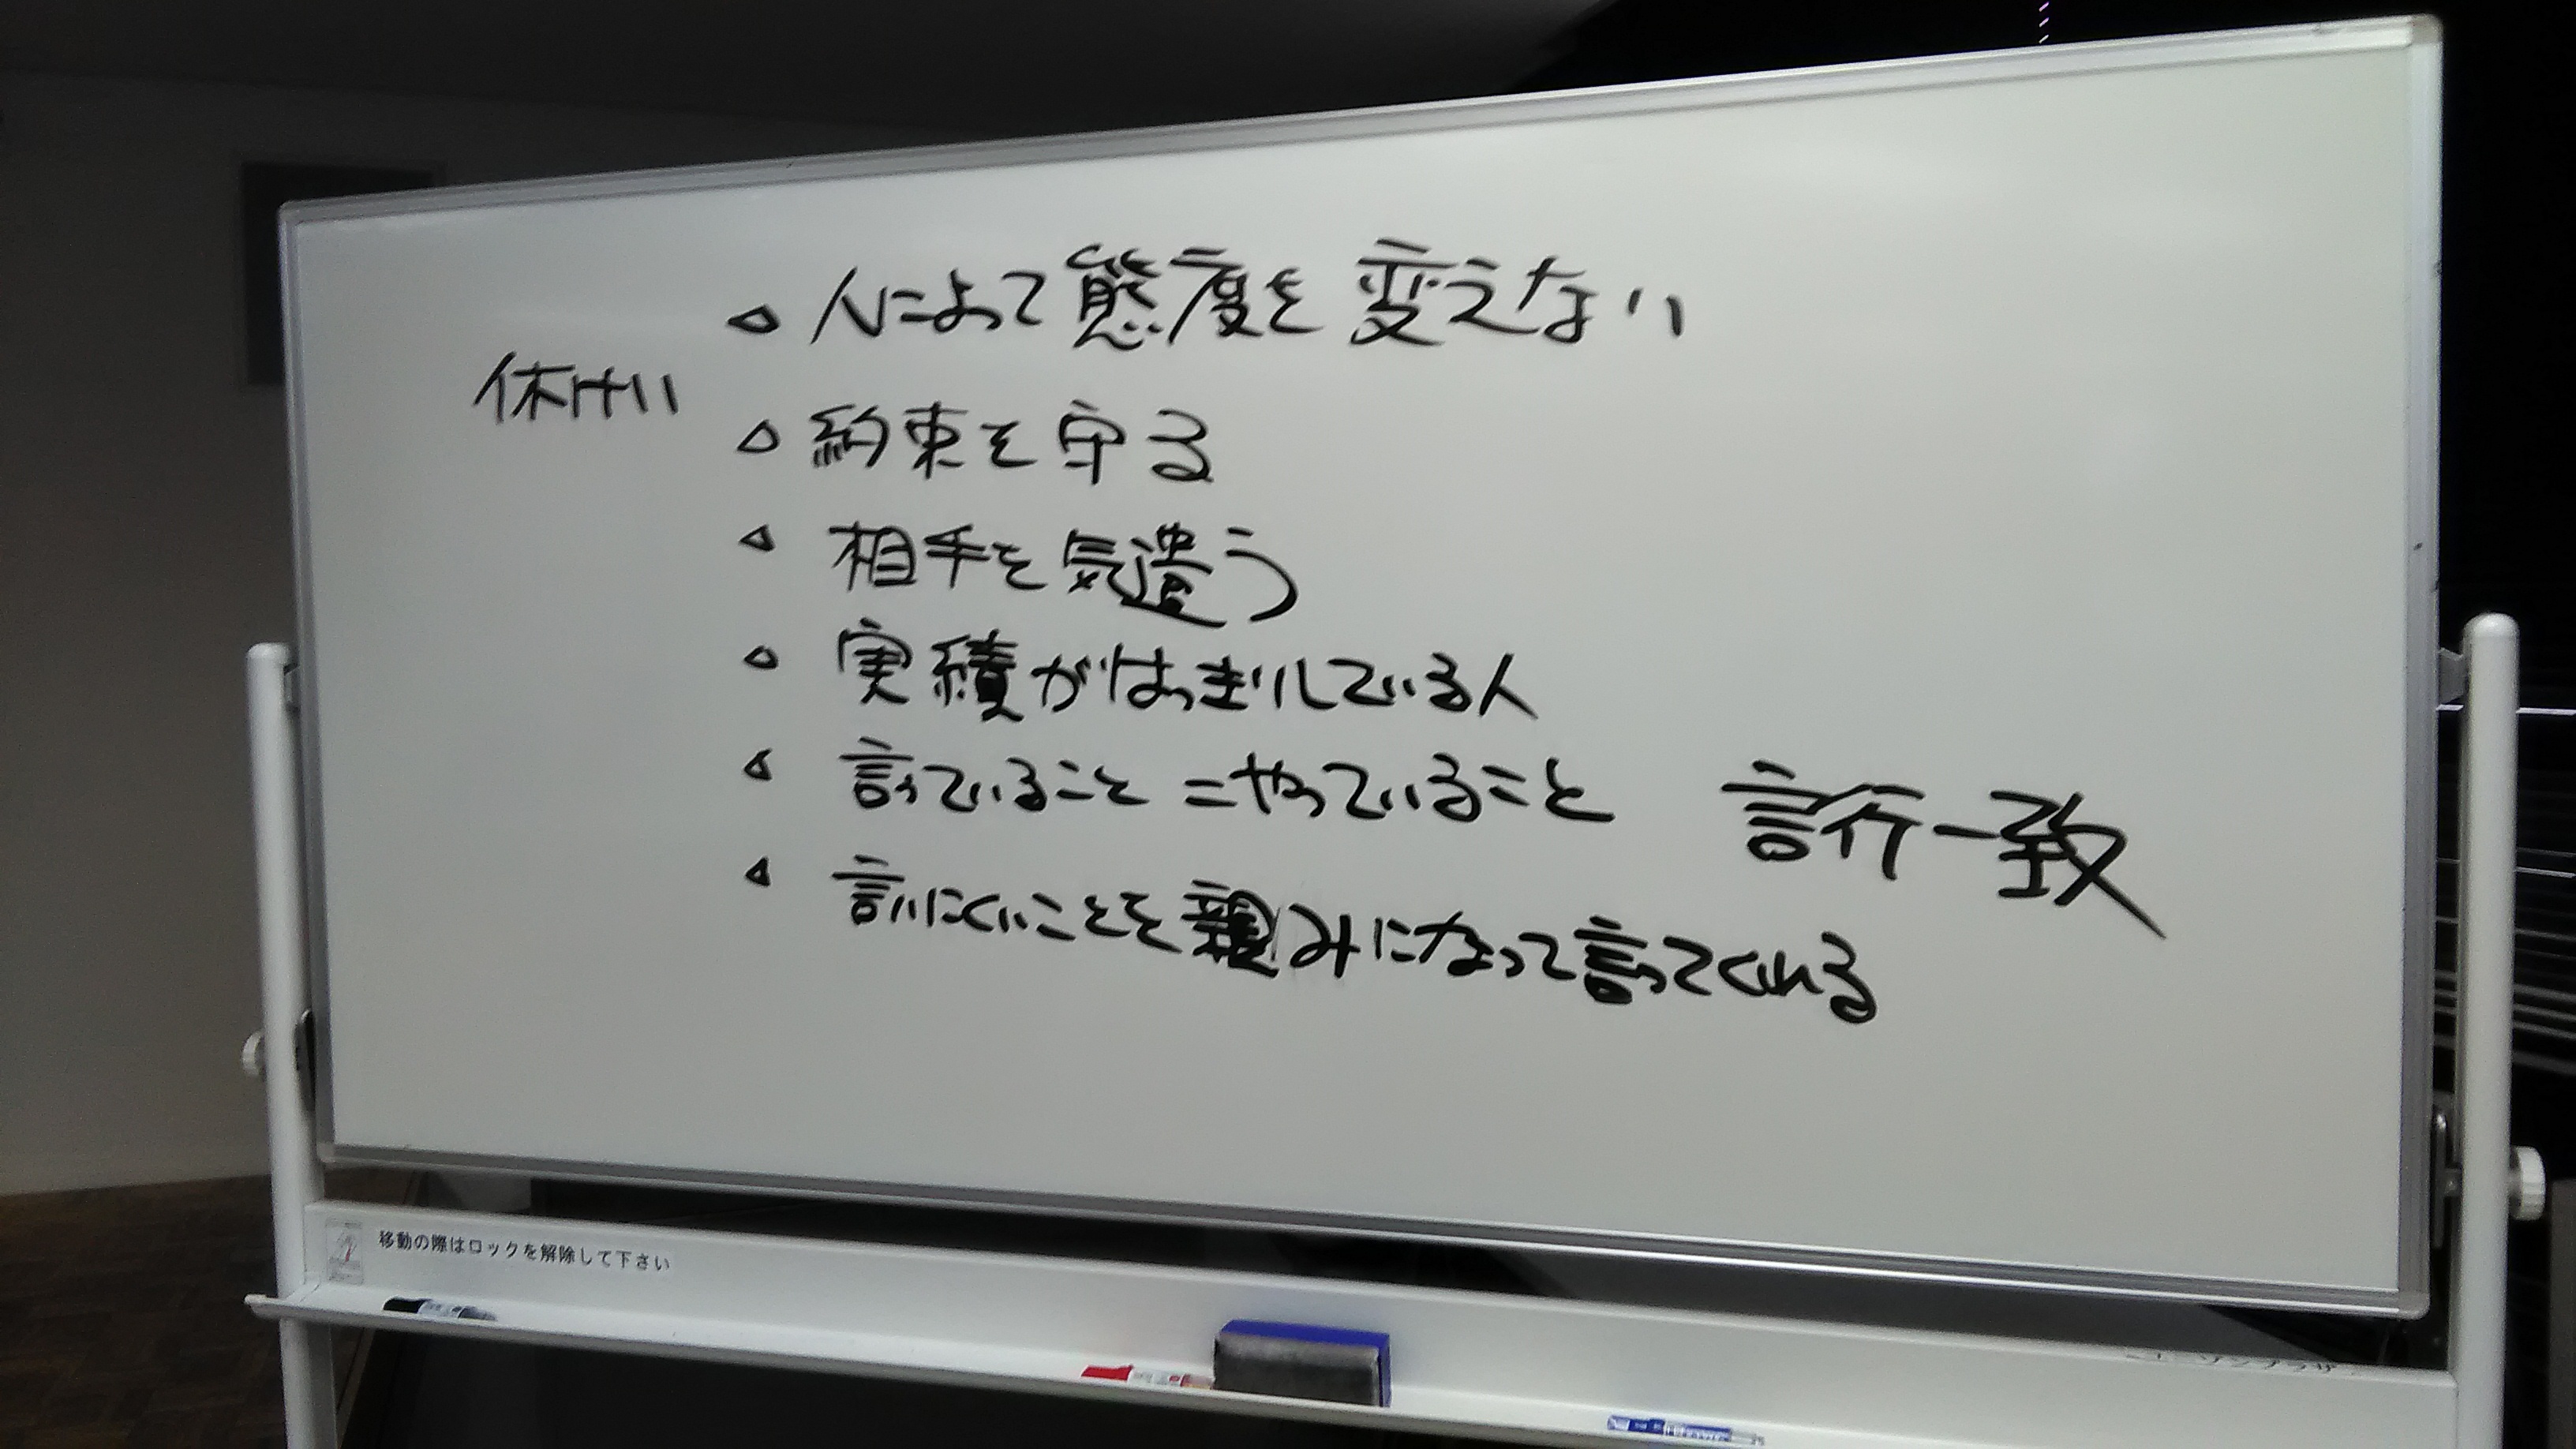 人によって態度を変えない
休けい
約束を守る
相手を気遣う
実績がはっきりしている人
言っていること=やっていること 言行一致
言いにくいことを親みになって言ってくれる
移動の際はロックを解除して下さい